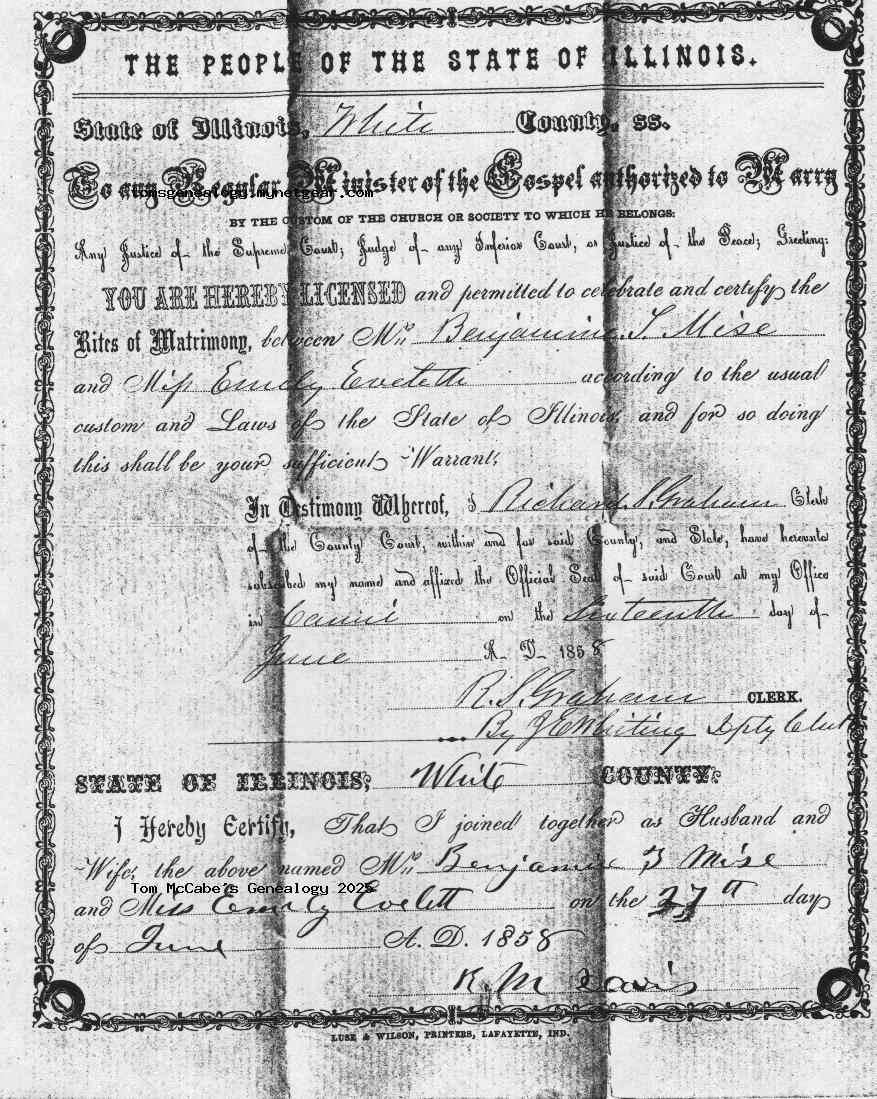 THE PEOPLE OF THE STATE OF ILLINOIS.
State of Illinois, White County, ss.
To any Regular Minister of the Gospel authorized to Marry
tomsgenealogy.mynetgear.com
BY THE CUSTOM OF THE CHURCH OR SOCIETY TO WHICH HE BELONGS:
Any Justice of the Supreme Court; Judge of any Inferior Court, or Justice of the Peace; Greeting:
YOU ARE HEREBY LICENSED and permitted to celebrate and certify the
Rites of Matrimony, between Mr. Benjamine T. Mise
and Miss Emily Eveleth according to the usual
custom and Laws of the State of Illinois, and for so doing
this shall be your sufficient Warrant.
In Testimony Whereof, I Richard S. Graham Clerk
of the County Court, within and for said County, and State, have hereunto
subscribed my name and affixed the Official Seal of said Court at my Office
in Carmi on the Sixteenth day of
June A. D. 1858
R. S. Graham CLERK.
By J E Whiting Dpty Clerk
STATE OF ILLINOIS; White COUNTY:
I Hereby Certify, That I joined together as Husband and
Wife, the above named Mr. Benjamin T Mise
Tom McCabe's Genealogy 2025
and Miss Emily Evelett on the 27th day
of June A. D. 1858
K. M Davis
LUSE & WILSON, PRINTERS, LAFAYETTE, IND.